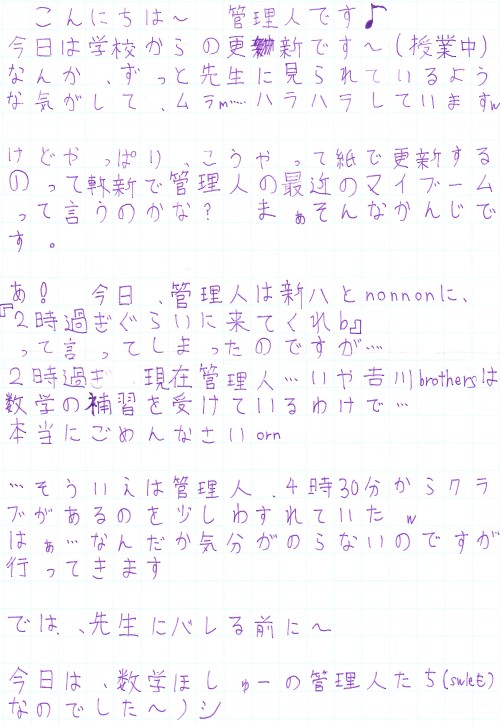 こんにちは～　管理人です♪
今日は学校からの更新です～(授業中)
なんか、ずっと先生に見られているよう
な気がして、ムラm……ハラハラしていますw
けどやっぱり、こうやって紙で更新する
のって斬新で管理人の最近のマイブーム
って言うのかな？　まぁそんなかんじで
す。
あ！　今日、管理人は新八とnonnonに、
『2時過ぎぐらいに来てくれb』
って言ってしまったのですが…
2時過ぎ　現在管理人…いや吉川brothersは
数学の補習を受けているわけで…
本当にごめんなさいorn
…そういえば管理人、4時30分からクラ
ブがあるのを少しわすれていたw
はぁ…なんだか気分がのらないのですが
行ってきます
では、先生にバレる前に～
今日は、数学ほしゅーの管理人たち(swleも)
なのでした～ノシ